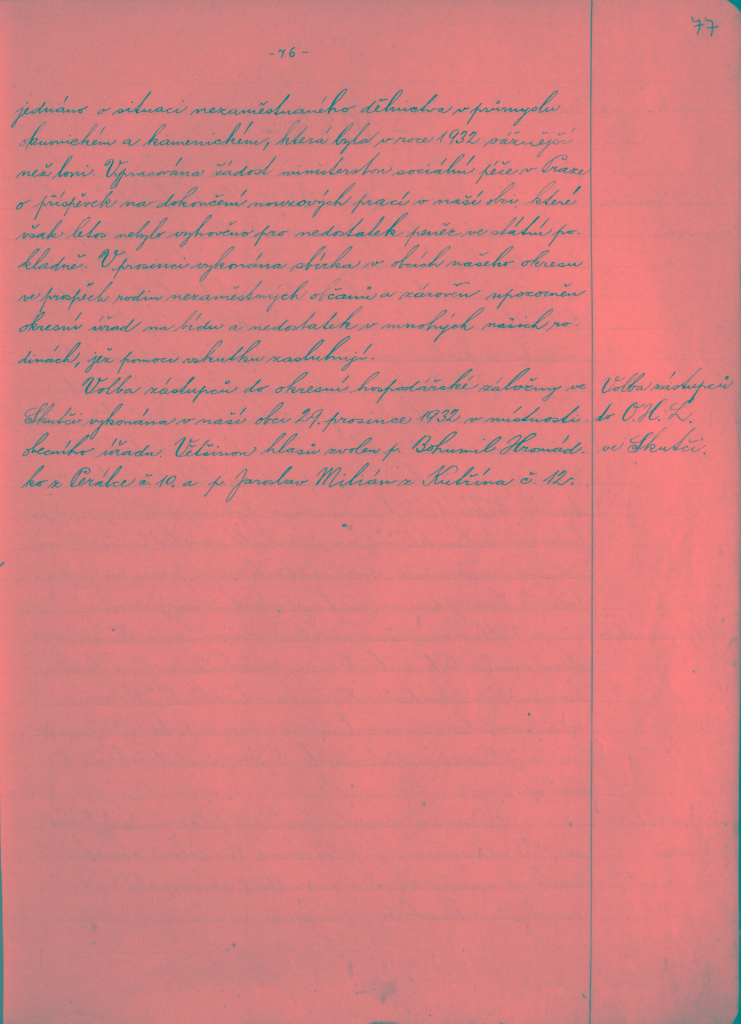 77
- 76 -
jednáno o situaci nezaměstnaného dělnictva v průmyslu
obuvnickém a kamenickém, která byla v roce 1932 vážnější
než loni. Vypracována žádost ministerstvu sociální péče v Praze
o příspěvek na dokončení nouzových prací v naší obci, které
však letos nebylo vyhověno pro nedostatek peněz ve státní po-
kladně. V prosinci vykonána sbírka v obcích našeho okresu
ve prospěch rodin nezaměstnných občanů a zároveň upozorněn
okresní úřad na bídu a nedostatek v mnohých našich ro-
dinách, jež pomoci vskutku zasluhují.
Volba zástupců do okresní hospodářské záložny ve
Skutči vykonána v naší obci 29. prosince 1932 v místnosti
obecního úřadu. Většinou hlasů zvolen p. Bohumil Hromád-
ko z Perálce č. 10. a p. Jaroslav Milián z Kutřína č. 12.
Volba zástupců
do O. H. Z.
ve Skutči.